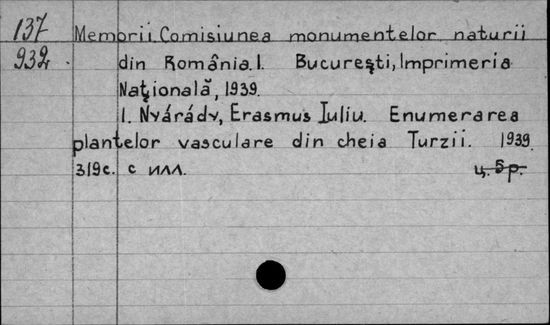 137
932
Memorii Comisiunea monumentelor naturii
din România. I. Bucureşti, Imprimeria
Naţională, 1939.
1. Nyárády, Erasmus Iuliu. Enumerarea
plantelor vasculare din cheia Turzii. 1939.
319с. с илл. ц. 5 р.